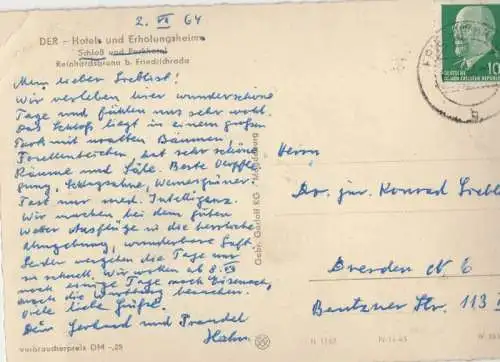 2. VI 64
DER – Hotels und Erholungsheime
Schloß und Parkhotel
Reinhardsbrunn b. Friedrichroda
Mein lieber Treblist!
Wir verleben hier wunderschöne
Tage und fühlen uns sehr wohl.
Das Schloß liegt in einem großen
Park mit uralten Bäumen,
Forellenteichen, hat sehr schöne
Räume und Säle. Beste Verpfle-
gung, Schlagsahne, Wernesgrüner.
Fast nur med. Intelligenz.
Wir machen bei dem guten
Wetter Ausflüge in die herrliche
Umgebung, wunderbare Luft.
Leider vergehen die Tage nur
zu schnell. Wir wollen ab 8. VI
noch einige Tage nach Eisenach,
auch die Wartburg besuchen.
Viele liebe Grüße!
Dein Gerhard und Trandel
Hahn.
Verbraucherpreis DM -,25
Gebr. Garloff KG · Magdeburg
DEUTSCHE
DEMOKRATISCHE REPUBLIK
10
b
Herrn
Dr. jur. Konrad
Dresden N 6
Bautzner Str. 113